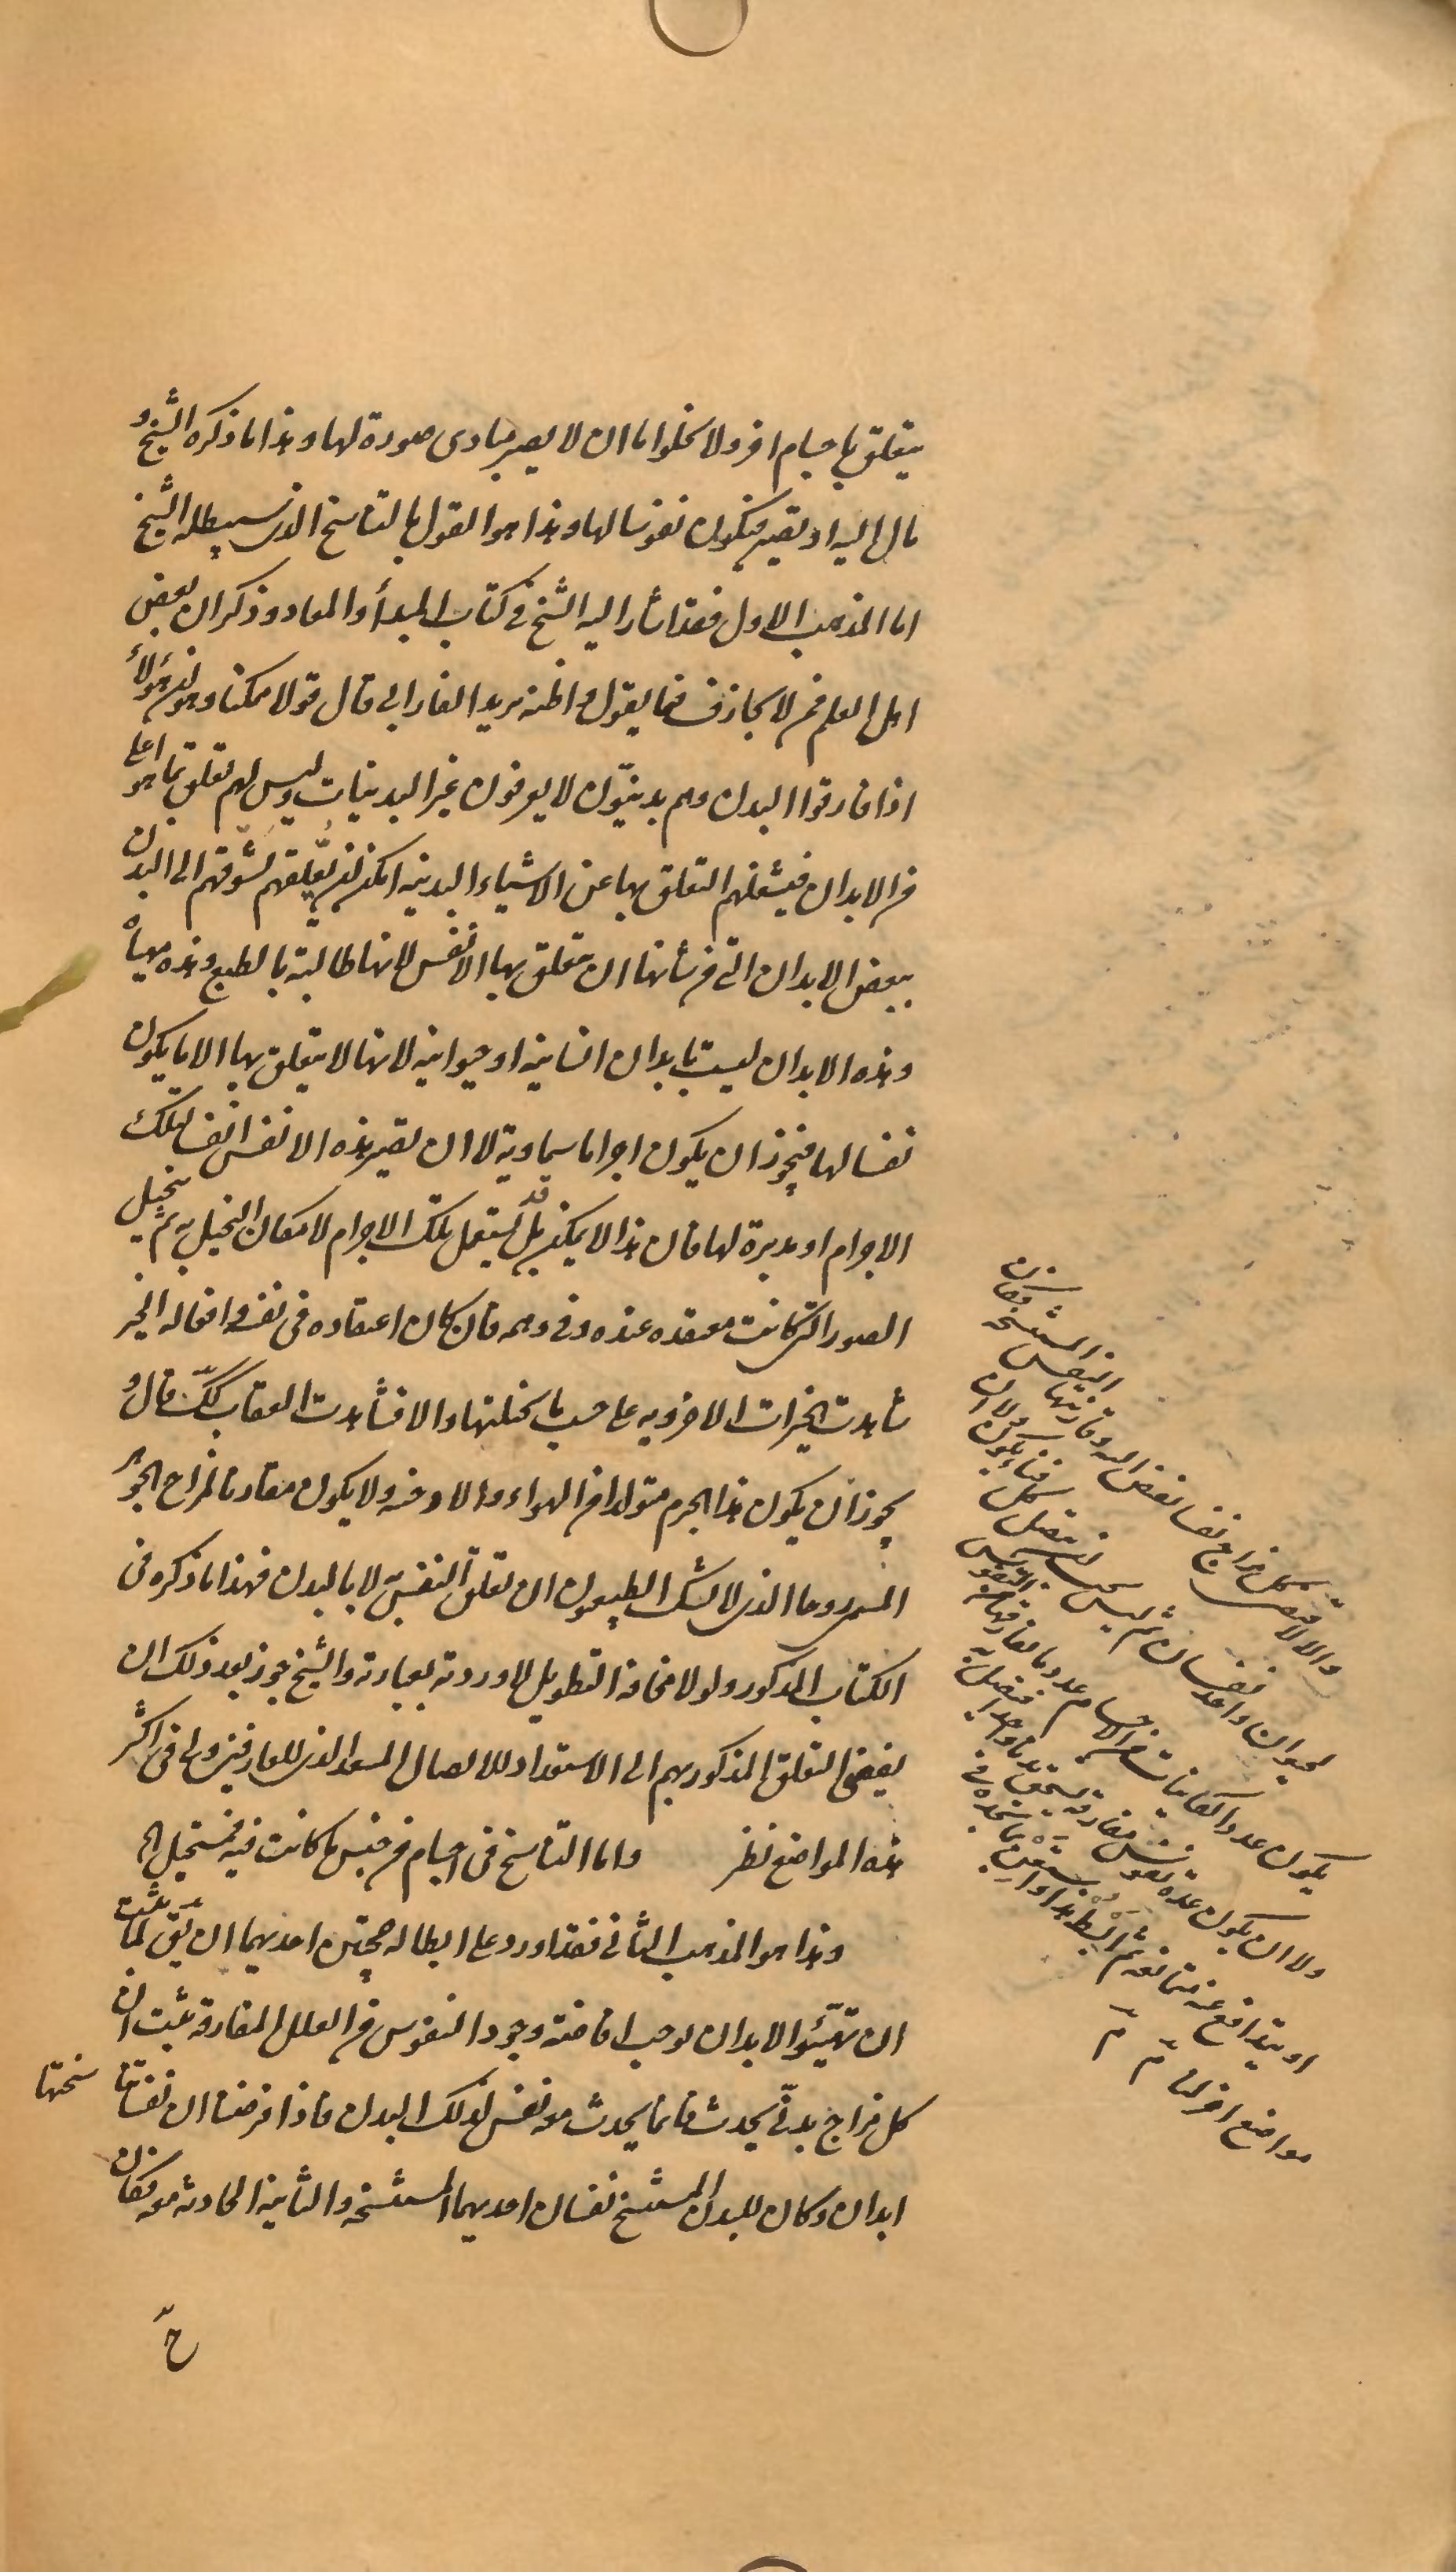 يتعلق باجسام اخر ولا يخلوا اما ان لا يصير مبادى صورة لها وهذا ما ذكره الشيخ و
مال اليه او يصير فيكون نفوسا لها وهذا هو القول بالتناسخ الذى سيبطله الشيخ
اما المذهب الاول فقد اشار اليه الشيخ فى كتاب المبدأ والمعاد وذكر ان بعض
اهل العلم ممن لا يجازف فيما يقول واظنه يريد الفارابى قال قولا ممكنا وهو ان هؤلاء
اذا فارقوا البدن وهم بدنيّون لا يعرفون غير البدنيات وليس لهم تعلق بما هو اعلى
من الابدان فيشغلهم التعلق بها عن الاشياء البدنيه امكن ان يعلقهم تشوقهم الى البدن
ببعض الابدان التى من شأنها ان يتعلق بها الانفس لانها طالبة بالطبع وهذه مهيأة
وهذه الابدان ليست بابدان انسانيه او حيوانيه لانها لا يتعلق بها الا ما يكون
نفسا لها فيجوز ان يكون اجراما سماوية لا ان يصير هذه الانفس انفسا لتلك
الاجرام او مدبرة لها فان هذا لا يمكن بل قد يستعمل تلك الاجرام لامكان التخيل به ثم يتخيل
الصور التى كانت معتقده عنده وفى وهمه فان كان اعتقاده فى نفسه وافعاله الخير
شاهدت الخيرات الاخرويه على حسب ما يخيلتها والا فشاهدت العقاب كك قال و
يجوز ان يكون هذا الجرم متولدا من الهواء والادخنه ولا يكون مقارنا لمزاج الجوهر
المسمى روحا الذى لا يشك الطبيعيون ان تعلق النفس به لا بالبدن فهذا ما ذكره فى
الكتاب المذكور ولولا مخافة التطويل لاوردته بعبارته والشيخ جوز بعد ذلك ان
يفضى التعلق المذكور بهم الى الاستعداد للاتصال المسعد الذى للعارفين ولى فى اكثر
هذه المواضع نظر واما التناسخ فى اجسام من جنس ما كانت فيه فمستحيل الخ
وهذا هو المذهب الثانى فقد اورد على ابطاله حجتين احديهما ان يق لما ثبت
ان تهيّئو الابدان يوجب افاضة وجود النفوس من العلل المفارقه ثبت ان
كل مزاج بدنىّ يحدث فانما يحدث معه نفس لذلك البدن فاذا فرضنا ان نفسا تناسختها
ابدان وكان للبدن المستنسخ نفسان احديهما المستنسخه والثانيه الحادثه معه فكان
ح
والا لاقتضى كل مزاج نفسا تفيض اليه وقارنتها النفس المستنسخه فكان
لحيوان واحد نفسان ثم ليس يجب ان يتصل كل فناء بكون ولا ان
يكون عدد الكاينات من الاجسام عدد ما يفارقها من النفوس
ولا ان يكون عدة نفوس مفارقه يستحق بدنا واحدا فيتصل به
او يتدافع عنه متمانعه ثم ابسط هذا واستعن بما تجده فى
مواضع اخر لنا